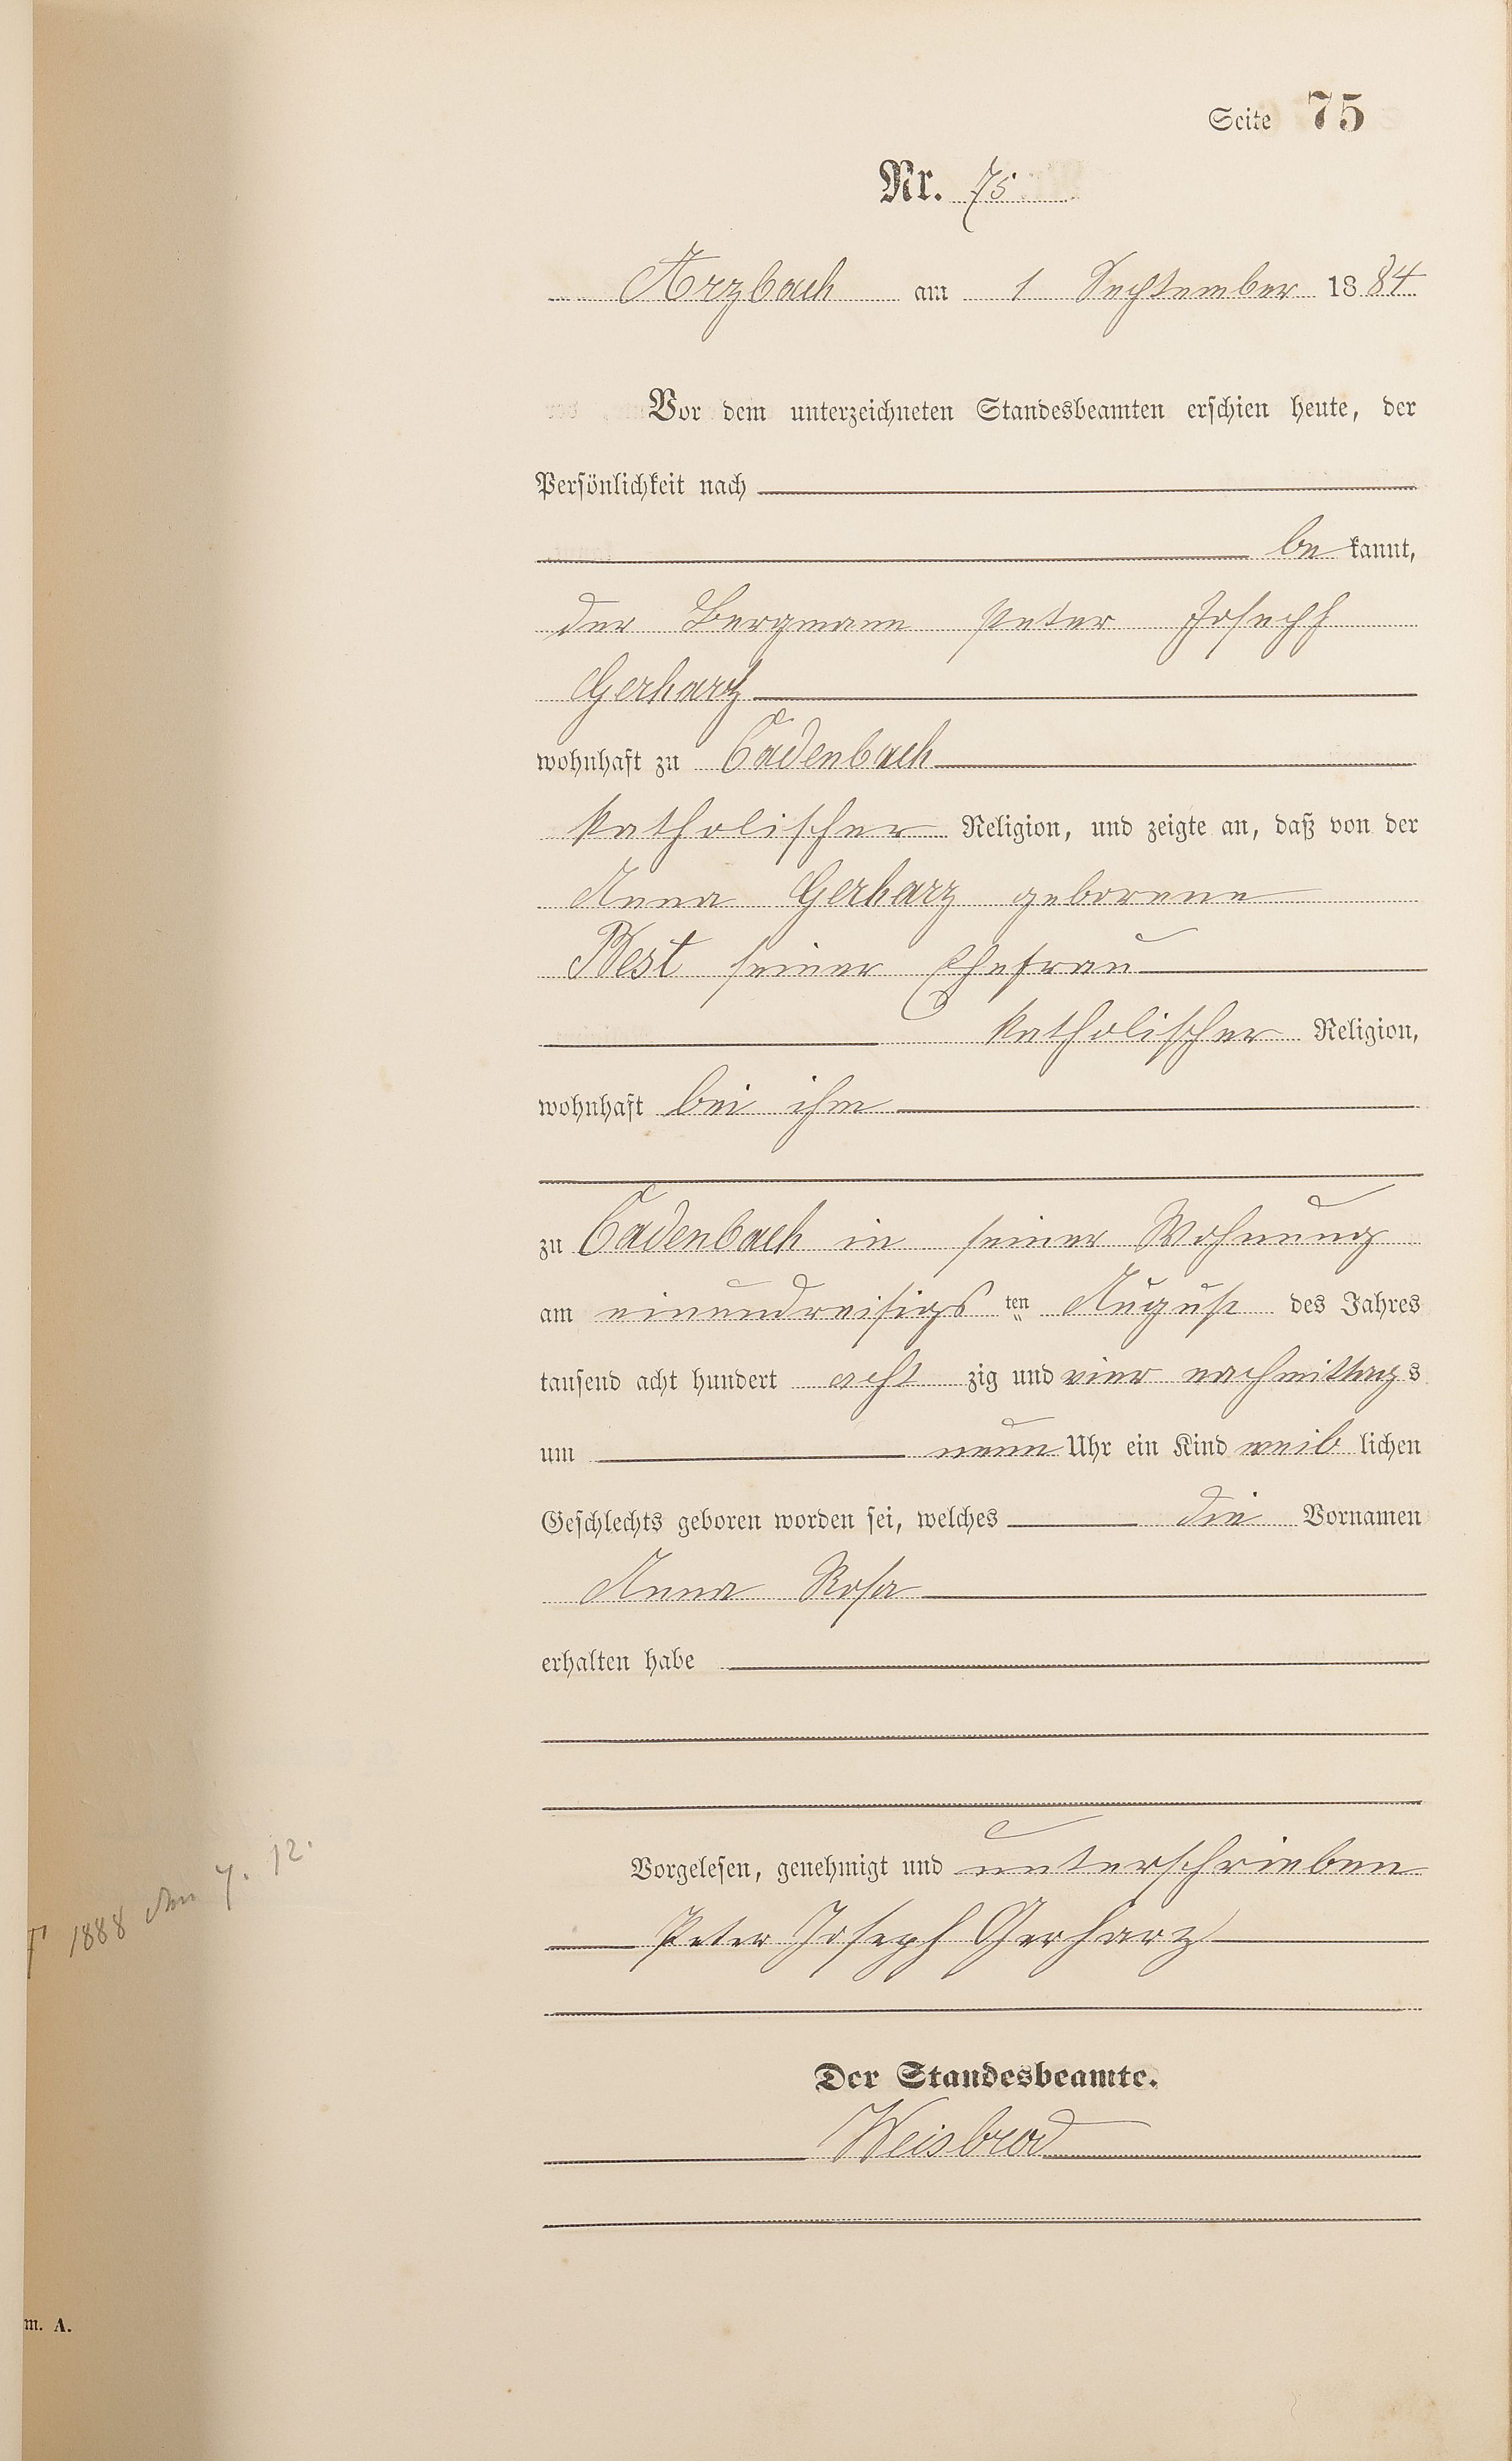 Seite 75
Nr. 75
Arzbach am 1 September 1884
Vor dem unterzeichneten Standesbeamten erschien heute, der
Persönlichkeit nach
be kannt,
der Bergmann Peter Joseph
Gerharz
wohnhaft zu Cadenbach
katholischer Religion, und zeigte an, daß von der
Anna Gerharz geborene
West seiner Ehefrau
katholischer Religion,
wohnhaft bei ihm
zu Cadenbach in seiner Wohnung
am einundreisigs ten August des Jahres
tausend acht hundert acht zig und vier nachmittags
um neun Uhr ein Kind weib lichen
Geschlechts geboren worden sei, welches die Vornamen
Anna Rosa
erhalten habe
Vorgelesen, genehmigt und unterschrieben
Peter Joseph Gerharz
Der Standesbeamte.
Weisbrod
† 1888 den 7. 12.
m. A.